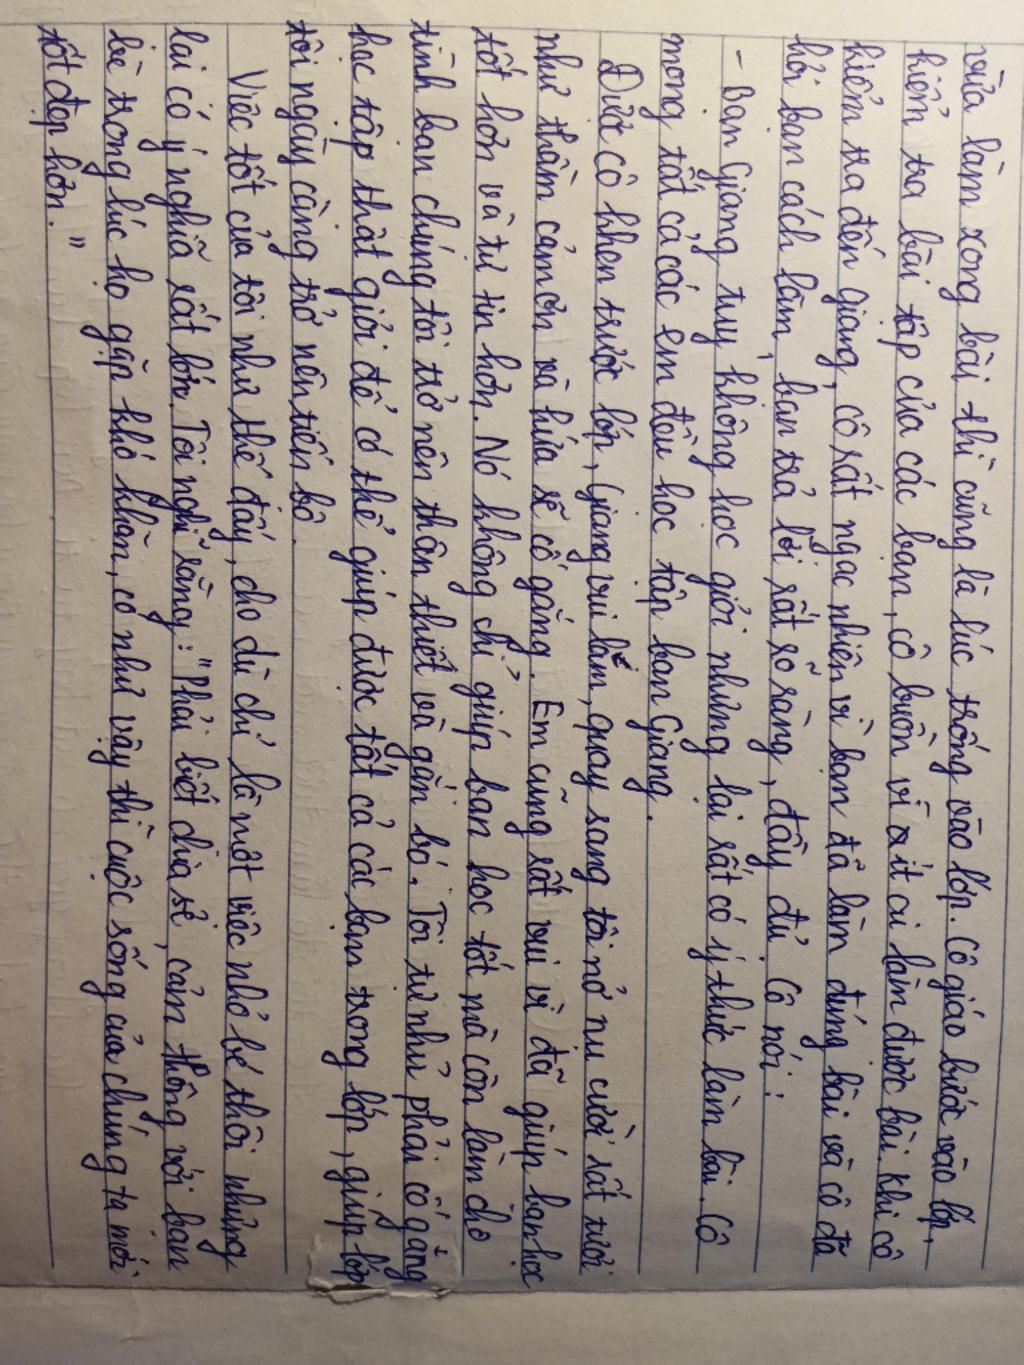 vừa làm xong bài thì cũng là lúc trống vào lớp. Cô giáo bước vào lớp,
kiểm tra bài tập của các bạn, cô buồn vì ít ai làm được bài. Khi cô
kiểm tra đến Giang, cô rất ngạc nhiên vì bạn đã làm đúng bài và cô đã
hỏi bạn cách làm, bạn trả lời rất rõ ràng, đầy đủ. Cô nói:
- Bạn Giang tuy không học giỏi nhưng lại rất có ý thức làm bài. Cô
mong tất cả các em đều học tập bạn Giang.
Được cô khen trước lớp, Giang vui lắm, quay sang tôi nở nụ cười rất tươi
như thầm cảm ơn và hứa sẽ cố gắng. Em cũng rất vui vì đã giúp bạn học
tốt hơn và tự tin hơn. Nó không chỉ giúp bạn học tốt mà còn làm cho
tình bạn chúng tôi trở nên thân thiết và gắn bó. Tôi tự nhủ phải cố gắng
học tập thật giỏi để có thể giúp được tất cả các bạn trong lớp, giúp lớp
tôi ngày càng trở nên tiến bộ.
Việc tốt của tôi như thế đấy, cho dù chỉ là một việc nhỏ bé thôi nhưng
lại có ý nghĩa rất lớn. Tôi nghĩ rằng: "Phải biết chia sẻ, cảm thông với bạn
bè trong lúc họ gặp khó khăn, có như vậy thì cuộc sống của chúng ta mới
tốt đẹp hơn."